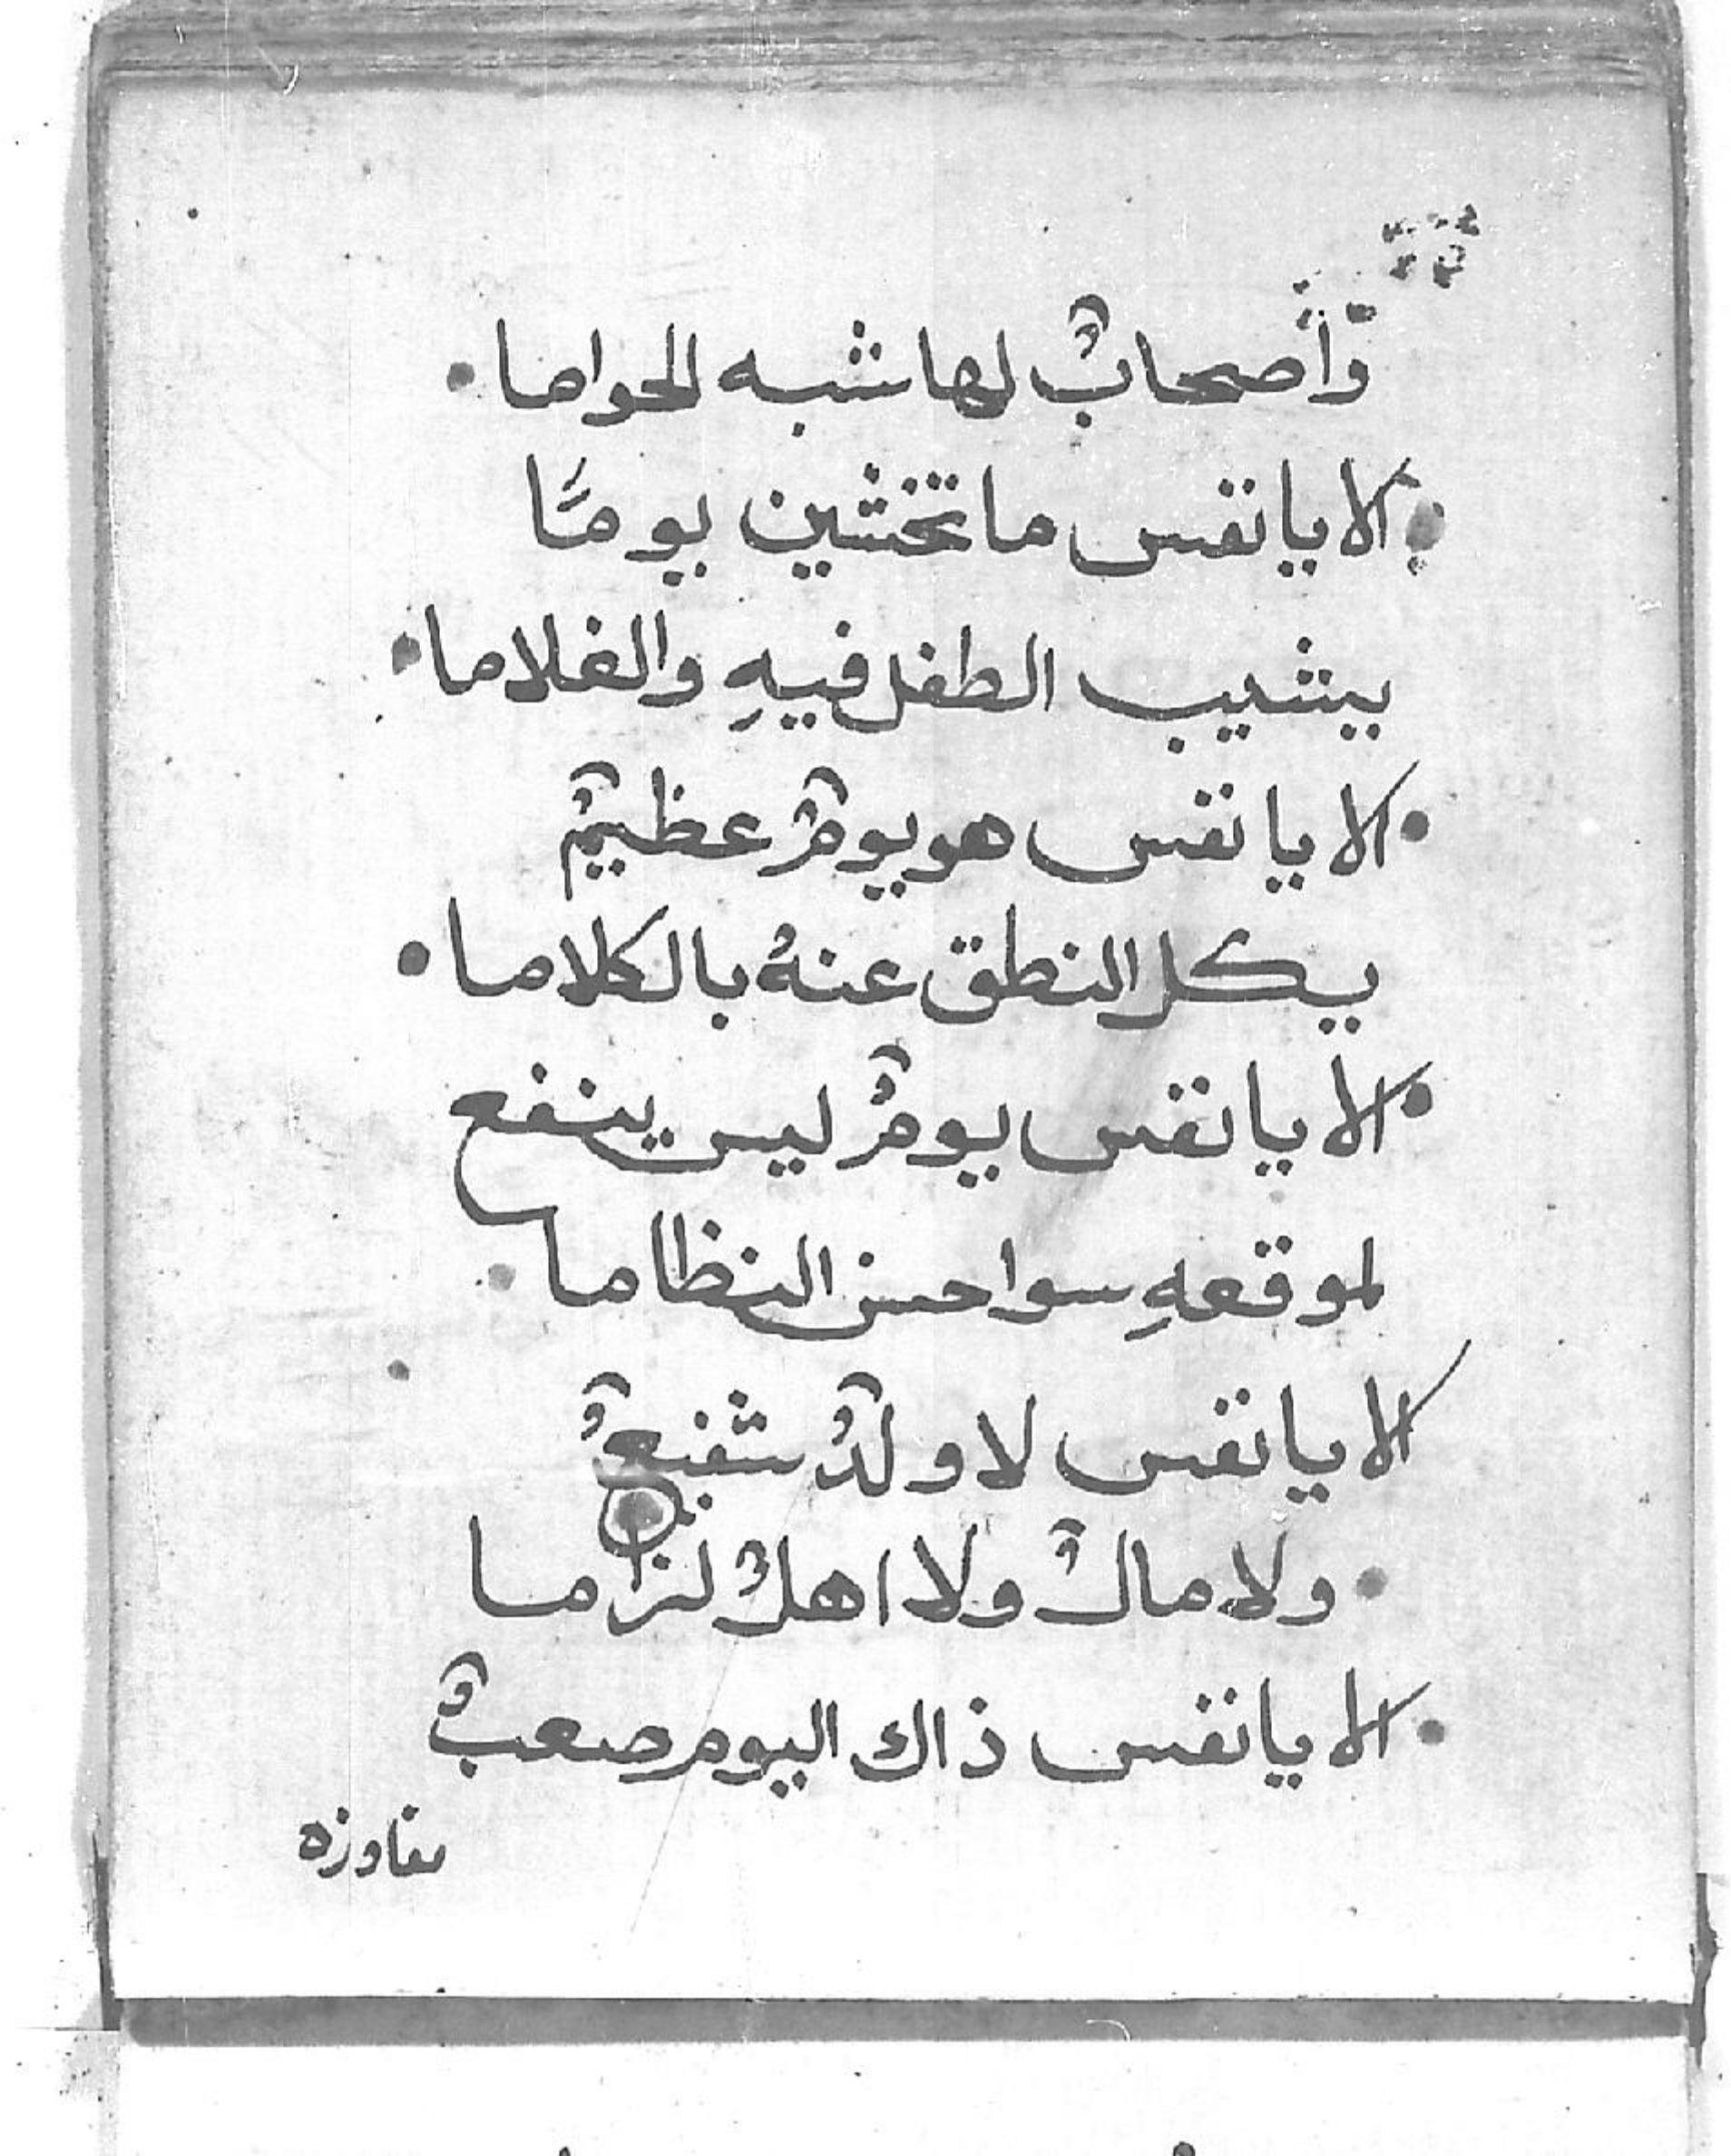 وَّأَصحابٌ لها شبه الحواما •
• الا يا نفس ما تخشين يومًا
يشيب الطفل فيهِ والغلاما •
• الا يا نفس هو يومٌ عظيمٌ
يكل النطق عنهُ بالكلاما •
• الا يا نفس يومٌ ليس ينفع
لموقعهِ سوا حسن النظاما •
الا يا نفس لا ولدٌ شفيعٌ
• ولا مالٌ ولا اهلٌ لزاما
• الا يا نفس ذاك اليوم صعبٌ
مفاوزه